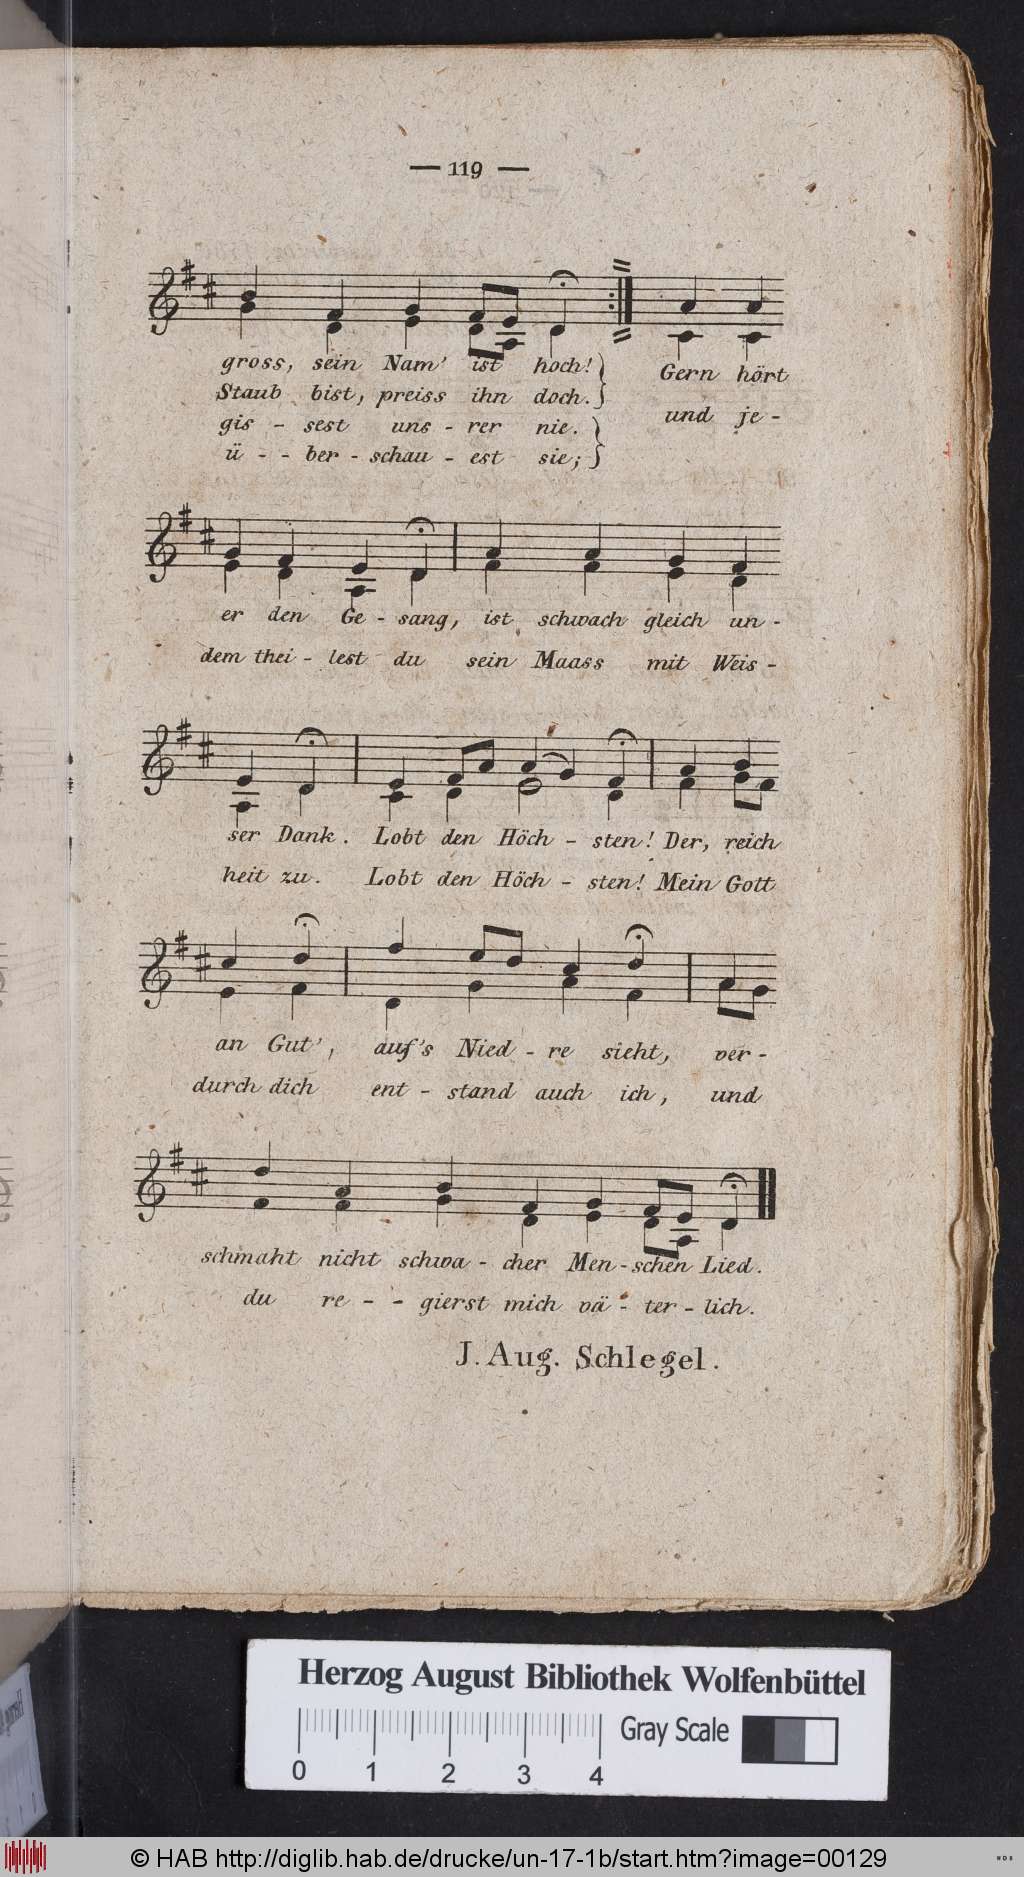 — 119 —
gross, sein Nam' ist hoch! Gern hört
Staub bist, preiss ihn doch.
und je-
gis - sest uns - rer nie.
ü - - ber - schau - est sie;
er den Ge - sang, ist schwach gleich un -
dem thei - lest du sein Maass mit Weis -
ser Dank. Lobt den Höch - sten! Der, reich
heit zu. Lobt den Höch - sten! Mein Gott
an Gut', auf's Nied - re sieht, ver -
durch dich ent - stand auch ich, und
schmaht nicht schwa - cher Men - schen Lied.
du re - - gierst mich vä - ter - lich.
J. Aug. Schlegel.
Herzog August Bibliothek Wolfenbüttel
Gray Scale
0 1 2 3 4
© HAB http://diglib.hab.de/drucke/un-17-1b/start.htm?image=00129